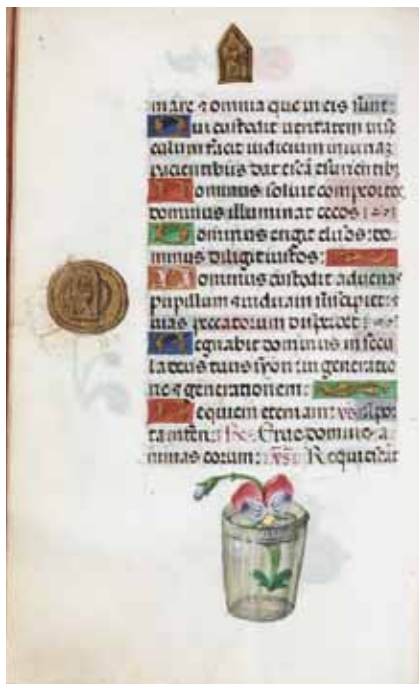 mare ⁊ omnia que in eis sunt:
Qui custodit veritatem in se
culum facit iudicium iniuriaz
pacientibus dat escā esurientibz
Dominus soluit compeditos
dominus illuminat cecos
Dominus erigit elisos: do
minus diligit iustos:
Dominus custodit aduenas
pupillum ⁊ viduam suscipiet: ⁊
vias peccatorum disperdet
Regnabit dominus in secu
la deus tuus syon: in generatio
ne ⁊ generationem:
Requiem eternam: vs
R. Erue domine a
nimas eorum: vs Requiescāt